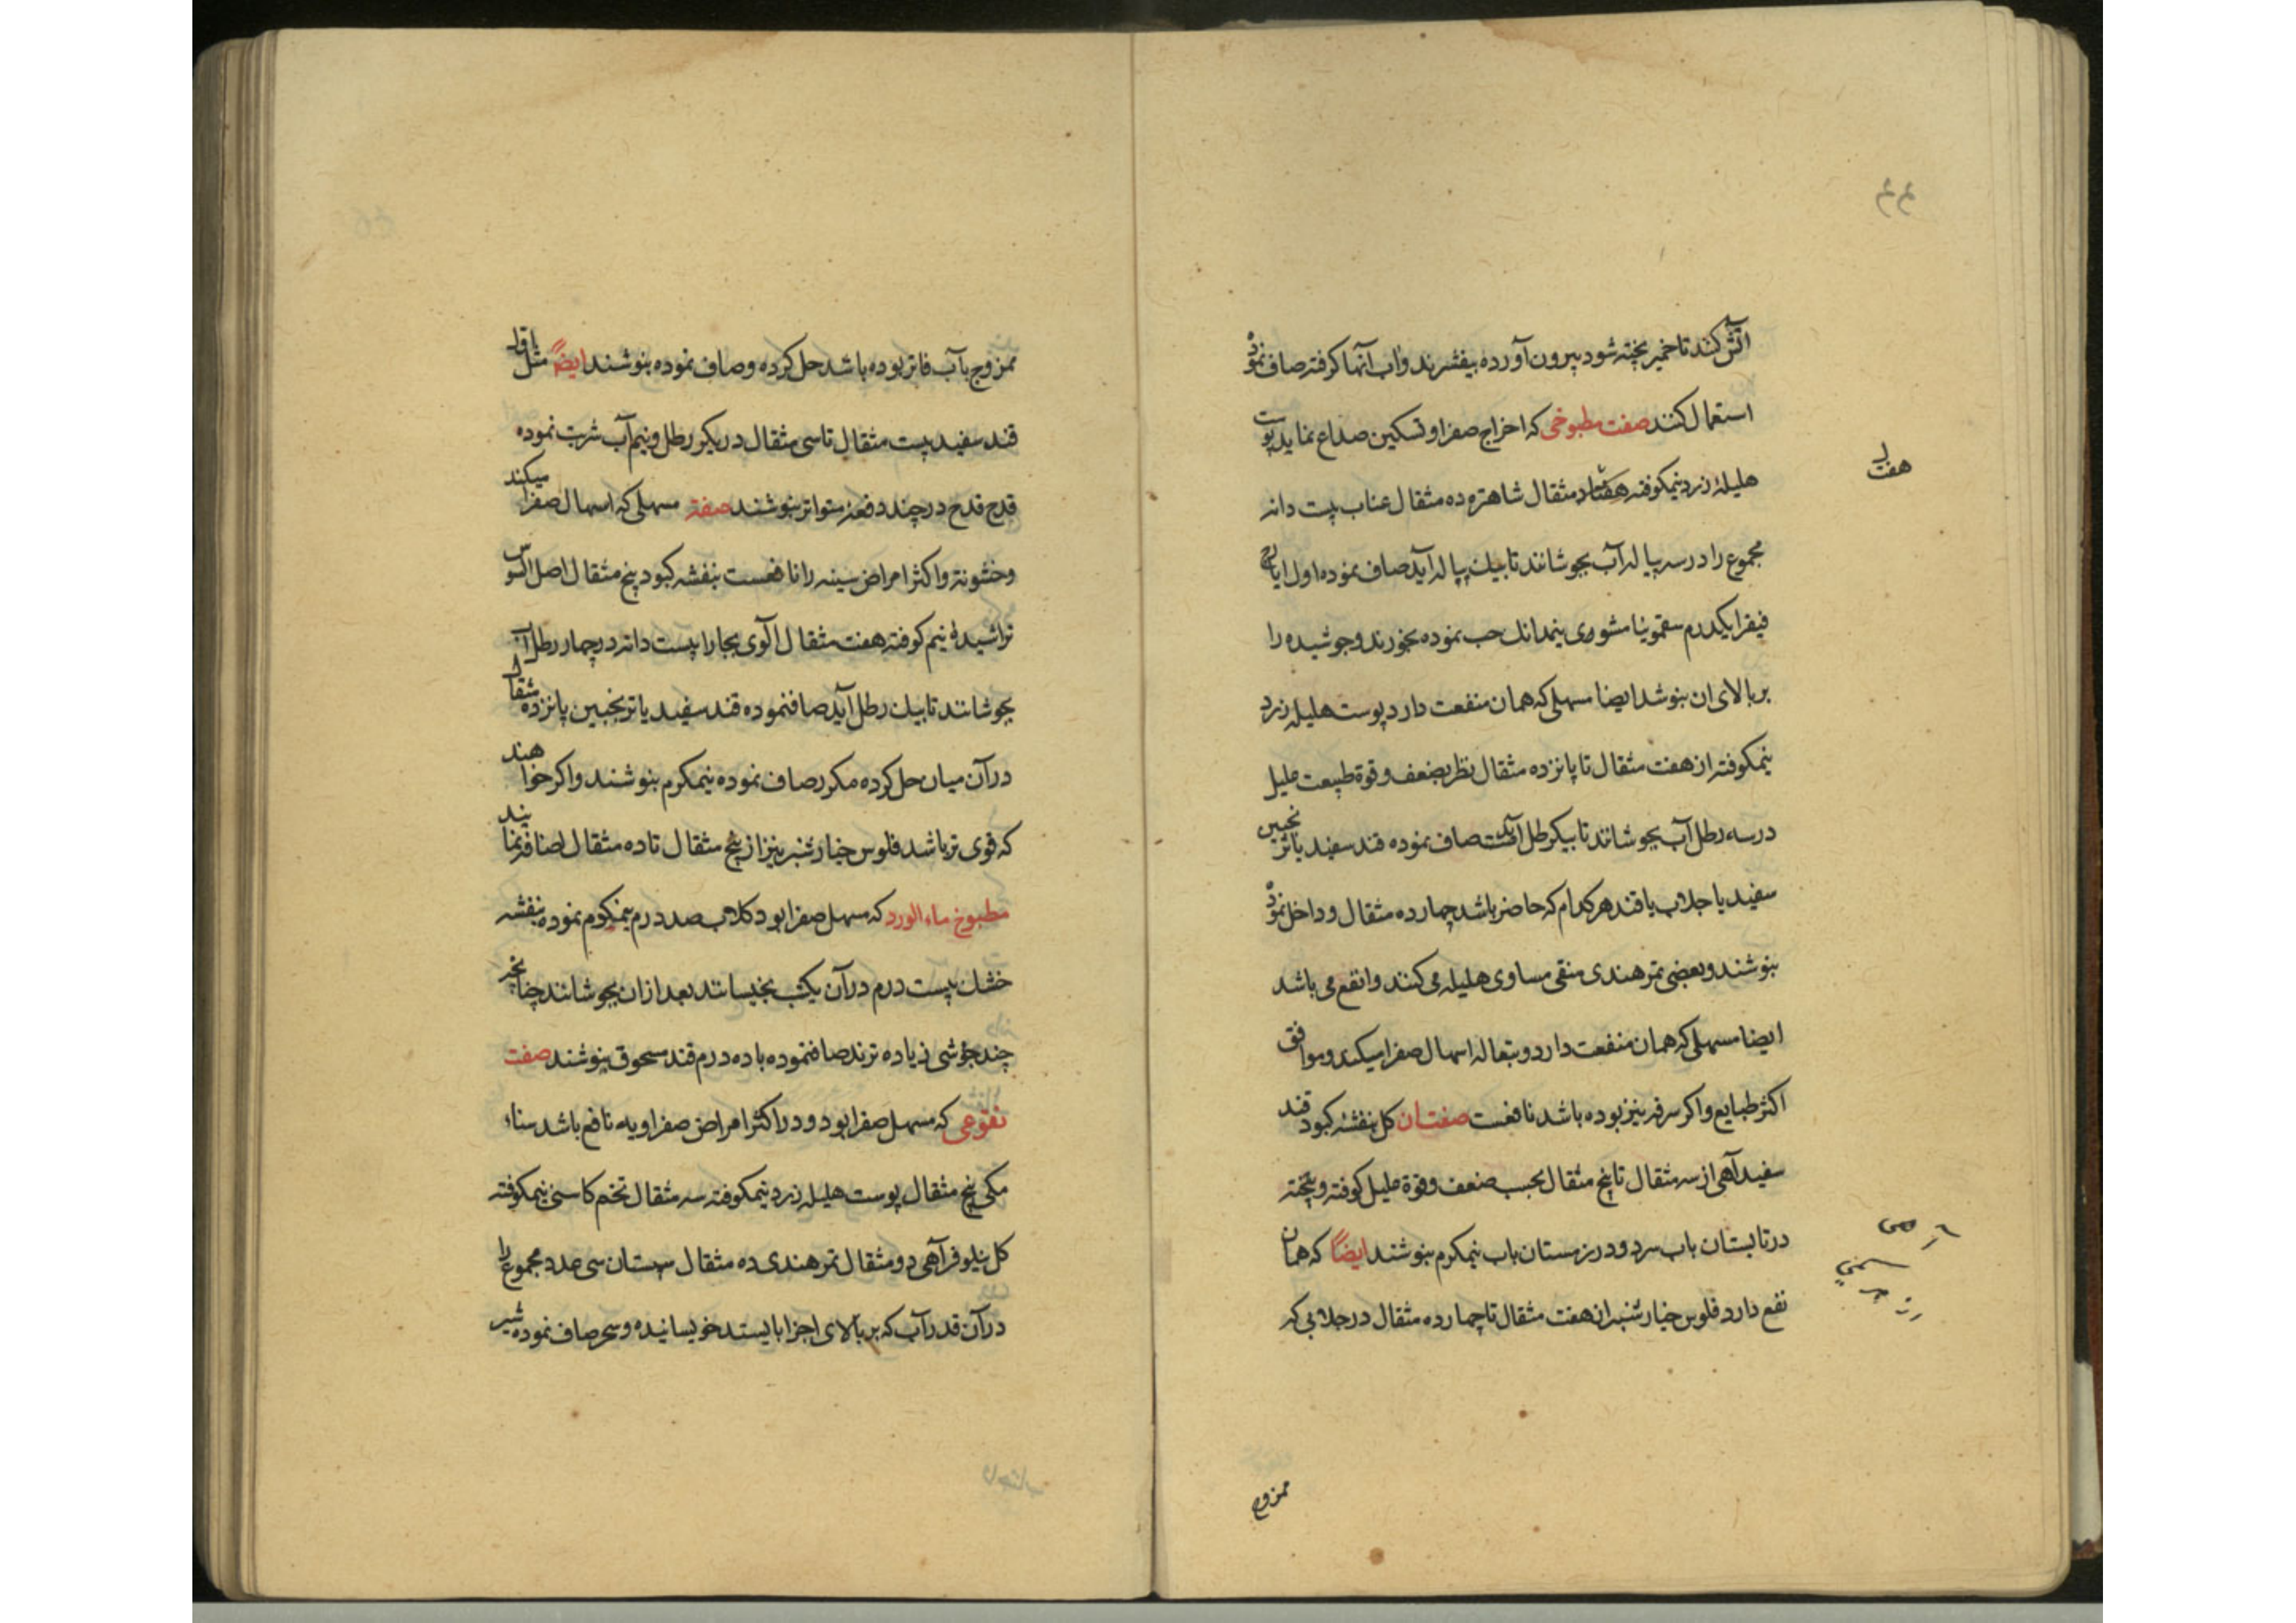 آتش کنند تا خمیر پخته شود بیرون آورده بیفشرند و آب آنها کرفته صاف نموده
استعمال کنند صفت مطبوخی که اخراج صفرا و تسکین صداع نماید پوست
هلیلهٔ زرد نیمکوفته هفت مثقال شاهتره ده مثقال عناب بیست دانه
هفت
مجموع را در سه پیاله آب بجوشانند تا بیک پیاله آید صاف نموده اول ایارج
فیقرا یکدرم سقمونیا مشوی نیمدانک حب نموده بخورند و جوشیده را
بر بالای ان بنوشد ایضا مسهلی که همان منفعت دارد پوست هلیله زرد
نیمکوفته از هفت مثقال تا پانزده مثقال نظر بضعف و قوة طبیعت علیل
در سه رطل آب بجوشانند تا بیکرطل آید صاف نموده قند سفید یا ترنجبین
سفید یا جلاب یا قند هر کدام که حاضر باشد چهارده مثقال و داخل نموده
بنوشند و بعضی تمر هندی منقی مساوی هلیله می کنند و انفع می باشد
ایضا مسهلی که همان منفعت دارد و بتعاله اسهال صفرا میکند و موافق
اکثر طبایع و اکر سرفه نیز بوده باشد نافعست صفت ان کل بنفشهٔ کبود قند
سفید آهی از سه مثقال تا پنج مثقال بحسب ضعف و قوة علیل کوفته و پخته
در تابستان باب سرد و در زمستان باب نیمکرم بنوشند ایضاً که همان
نفع دارد فلوس خیارشنبر از هفت مثقال تا چهارده مثقال در جلابی که
ممزوج
ممزوج با آب فاتر بوده باشد حل کرده و صاف نموده بنوشند ایضاً مثل باقلا
قند سفید بیست مثقال تا سی مثقال در یکرطل و نیم آب شربت نموده
قدح قدح در چند دفعهٔ متواتر بنوشند صفته مسهلی که اسهال صفرا میکند
و خشونة و اکثر امراض سینه را نافعست بنفشه کبود پنج مثقال اصل السوس
تراشیدهٔ نیم کوفته هفت مثقال آلوی بخارا بیست دانه در چهار رطل آب
بجوشانند تا بیک رطل آید صاف نموده قند سفید یا ترنجبین پانزده مثقال
در آن میان حل کرده مکرر صاف نموده نیمکرم بنوشند و اکر خواهند
که قوی تر باشد فلوس خیارشنبر نیز از پنج مثقال تا ده مثقال اضافه نمایند
مطبوخ ماء الورد که مسهل صفرا بود کلاب صد درم نیمکرم نموده بنفشه
خشک بیست درم در آن یکشب بخیسانند بعد از ان بجوشانند چنانچه
چند جوشی زیاده نزند صاف نموده با ده درم قند مسحوق بنوشند صفت
نقوعی که مسهل صفرا بود و در اکثر امراض صفراویه نافع باشد سناء
مکی پنج مثقال پوست هلیله زرد نیمکوفته سه مثقال تخم کاسنی نیمکوفته
کل نیلوفر آهی دو مثقال تمر هندی ده مثقال سپستان سی عدد مجموع را
در آن قدر آب که بر بالای اجزا بایستد خویسانیده و سحر صاف نموده شیر